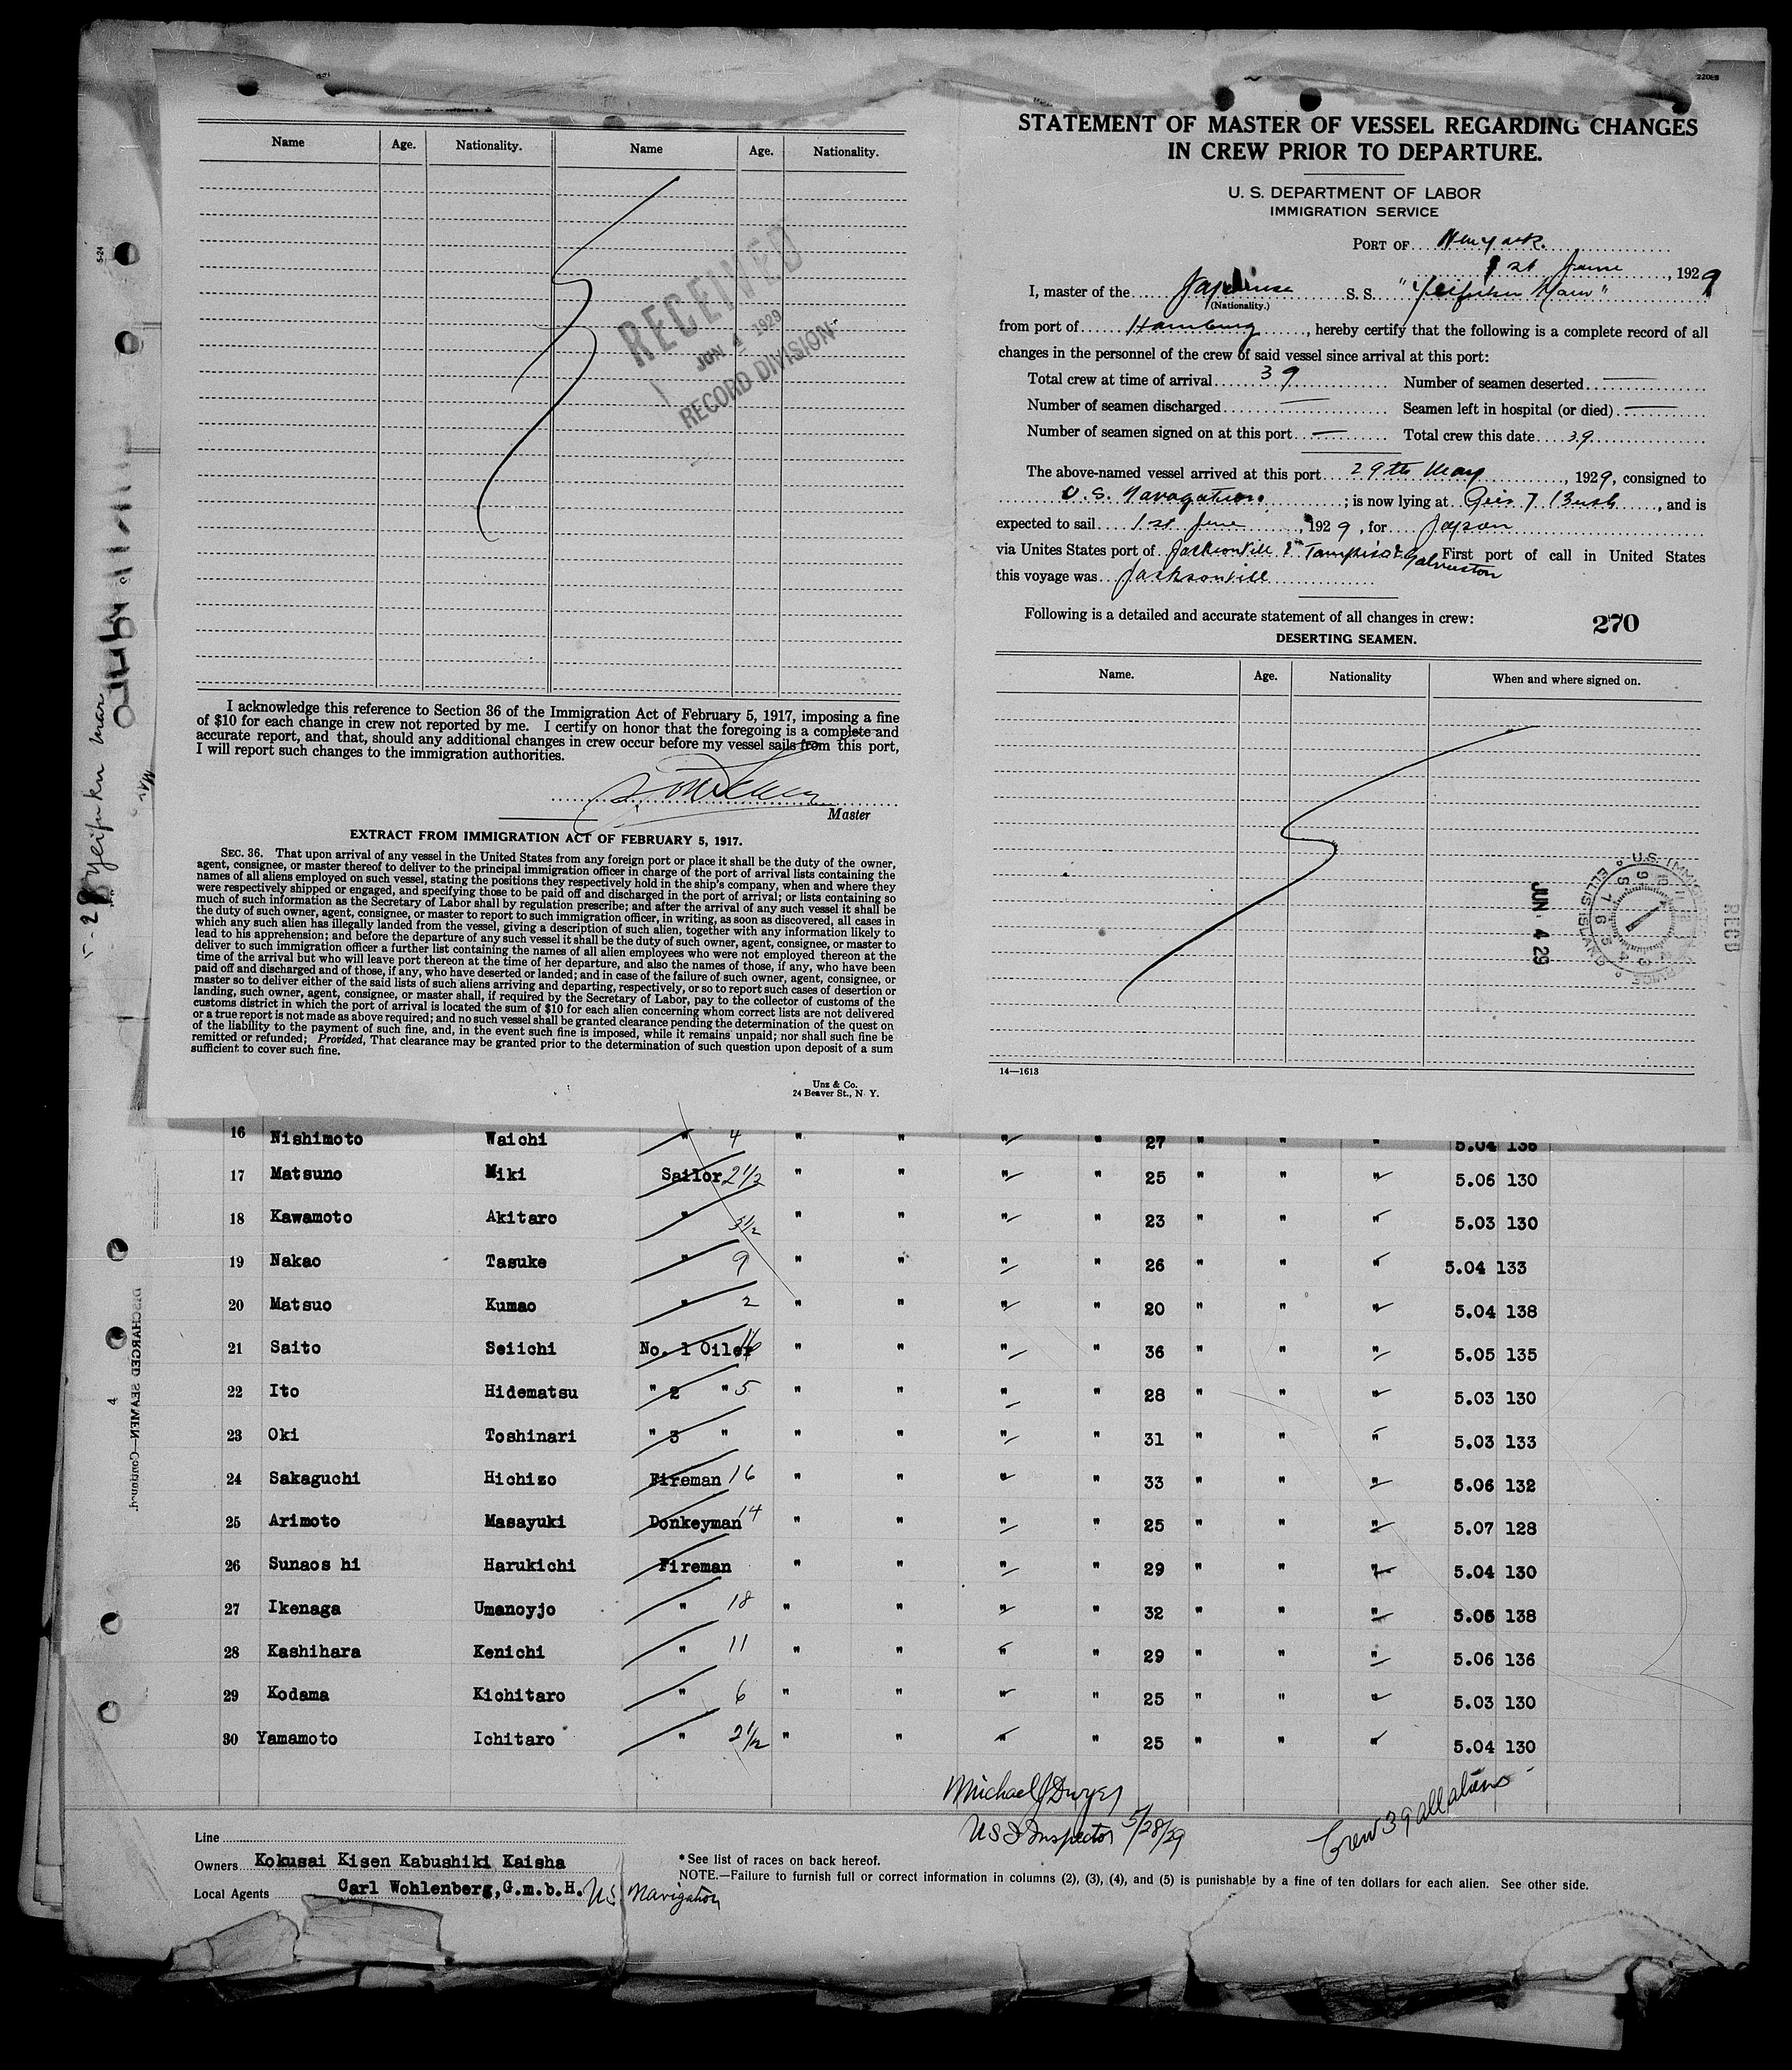 220EB
Name Age. Nationality. Name Age. Nationality.
RECEIVED
JUN 4 1929
RECORD DIVISION
I acknowledge this reference to Section 36 of the Immigration Act of February 5, 1917, imposing a fine
of $10 for each change in crew not reported by me. I certify on honor that the foregoing is a complete and
accurate report, and that, should any additional changes in crew occur before my vessel sails from this port,
I will report such changes to the immigration authorities.
Master
EXTRACT FROM IMMIGRATION ACT OF FEBRUARY 5, 1917.
SEC. 36. That upon arrival of any vessel in the United States from any foreign port or place it shall be the duty of the owner,
agent, consignee, or master thereof to deliver to the principal immigration officer in charge of the port of arrival lists containing the
names of all aliens employed on such vessel, stating the positions they respectively hold in the ship's company, when and where they
were respectively shipped or engaged, and specifying those to be paid off and discharged in the port of arrival; or lists containing so
much of such information as the Secretary of Labor shall by regulation prescribe; and after the arrival of any such vessel it shall be
the duty of such owner, agent, consignee, or master to report to such immigration officer, in writing, as soon as discovered, all cases in
which any such alien has illegally landed from the vessel, giving a description of such alien, together with any information likely to
lead to his apprehension; and before the departure of any such vessel it shall be the duty of such owner, agent, consignee, or master to
deliver to such immigration officer a further list containing the names of all alien employees who were not employed thereon at the
time of the arrival but who will leave port thereon at the time of her departure, and also the names of those, if any, who have been
paid off and discharged and of those, if any, who have deserted or landed; and in case of the failure of such owner, agent, consignee, or
master so to deliver either of the said lists of such aliens arriving and departing, respectively, or so to report such cases of desertion or
landing, such owner, agent, consignee, or master shall, if required by the Secretary of Labor, pay to the collector of customs of the
customs district in which the port of arrival is located the sum of $10 for each alien concerning whom correct lists are not delivered
or a true report is not made as above required; and no such vessel shall be granted clearance pending the determination of the quest on
of the liability to the payment of such fine, and, in the event such fine is imposed, while it remains unpaid; nor shall such fine be
remitted or refunded; Provided, That clearance may be granted prior to the determination of such question upon deposit of a sum
sufficient to cover such fine.
Unz & Co.
24 Beaver St., N Y.
STATEMENT OF MASTER OF VESSEL REGARDING CHANGES
IN CREW PRIOR TO DEPARTURE.
U. S. DEPARTMENT OF LABOR
IMMIGRATION SERVICE
PORT OF New york.
1st June, 1929
I, master of the Japanese S. S. "Yeifuku Maru"
(Nationality.)
from port of Hamburg, hereby certify that the following is a complete record of all
changes in the personnel of the crew of said vessel since arrival at this port:
Total crew at time of arrival 39 Number of seamen deserted —
Number of seamen discharged — Seamen left in hospital (or died) —
Number of seamen signed on at this port — Total crew this date 39
The above-named vessel arrived at this port 29th May, 1929, consigned to
U. S. Navagation; is now lying at Pier 7 Bush, and is
expected to sail 1st June, 1929, for Japan
via Unites States port of Jacksonvill & Galveston First port of call in United States
this voyage was Jacksonvill
Following is a detailed and accurate statement of all changes in crew:
270
DESERTING SEAMEN.
Name. Age. Nationality When and where signed on.
JUN 4 29
U.S.
ELLIS ISLAND
RECD
14—1613
5-24
Yeifuku Mar
DISCHARGED SEAMEN—Continued.
4
16 Nishimoto Waichi " 4 " " " " 27 " " " 5.04 136
17 Matsuno Miki Sailor 2 1/2 " " " " 25 " " " 5.06 130
18 Kawamoto Akitaro " 3 1/2 " " " " 23 " " " 5.03 130
19 Nakao Tasuke " 9 " " " " 26 " " " 5.04 133
20 Matsuo Kumao " 2 " " " " 20 " " " 5.04 138
21 Saito Seiichi No. 1 Oiler 16 " " " " 36 " " " 5.05 135
22 Ito Hidematsu " 2 " 5 " " " " 28 " " " 5.03 130
23 Oki Toshinari " 3 " " " " " 31 " " " 5.03 133
24 Sakaguchi Hichizo Fireman 16 " " " " 33 " " " 5.06 132
25 Arimoto Masayuki Donkeyman 14 " " " " 25 " " " 5.07 128
26 Sunaos hi Harukichi Fireman " " " " 29 " " " 5.04 130
27 Ikenaga Umanoyjo " 18 " " " " 32 " " " 5.06 138
28 Kashihara Kenichi " 11 " " " " 29 " " " 5.06 136
29 Kodama Kichitaro " 6 " " " " 25 " " " 5.03 130
30 Yamamoto Ichitaro " 2 1/2 " " " " 25 " " " 5.04 130
Michael J Dwyer
US I Inspector 5/28/29
Crew 39 all aliens
Line
Owners Kokusai Kisen Kabushiki Kaisha
Local Agents Carl Wohlenberg, G.m.b.H. US Navigation
* See list of races on back hereof.
NOTE.—Failure to furnish full or correct information in columns (2), (3), (4), and (5) is punishable by a fine of ten dollars for each alien. See other side.